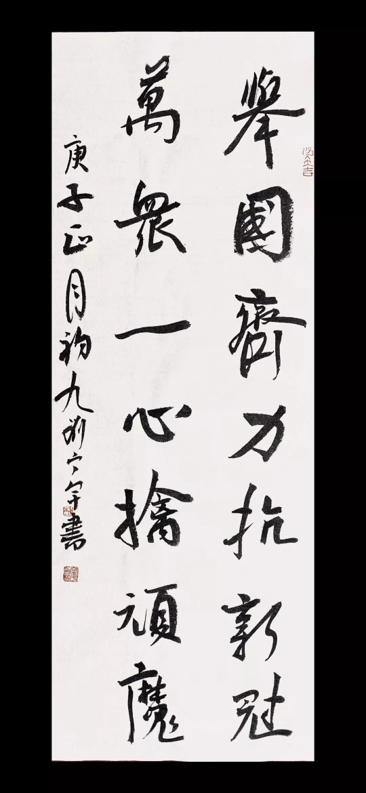 舉國齊力抗新冠
萬衆一心擒頑魔
庚子正月初九劉書